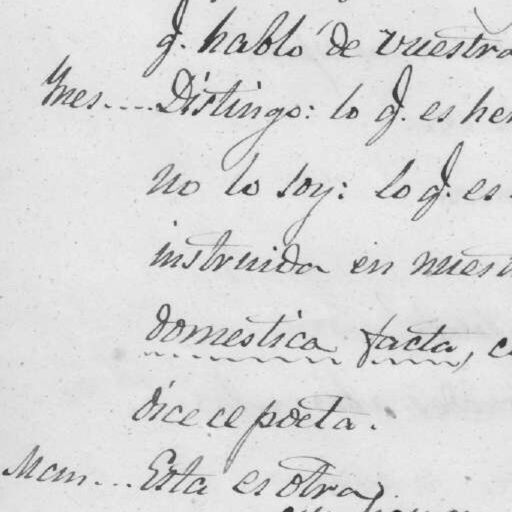 q.e habló de vuestra
Ynes....Distingo: lo q.e es her
no lo soy: lo q.e es
instruida en nuest
domestica facta, c
dice el poeta.
Man...Esta es otra